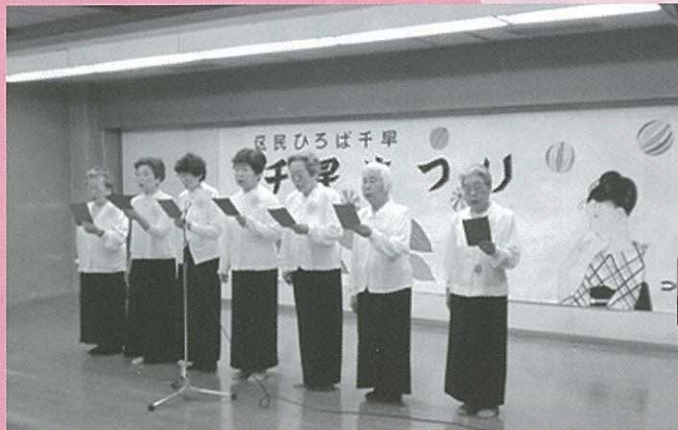 区民ひろば千早
千早まつり